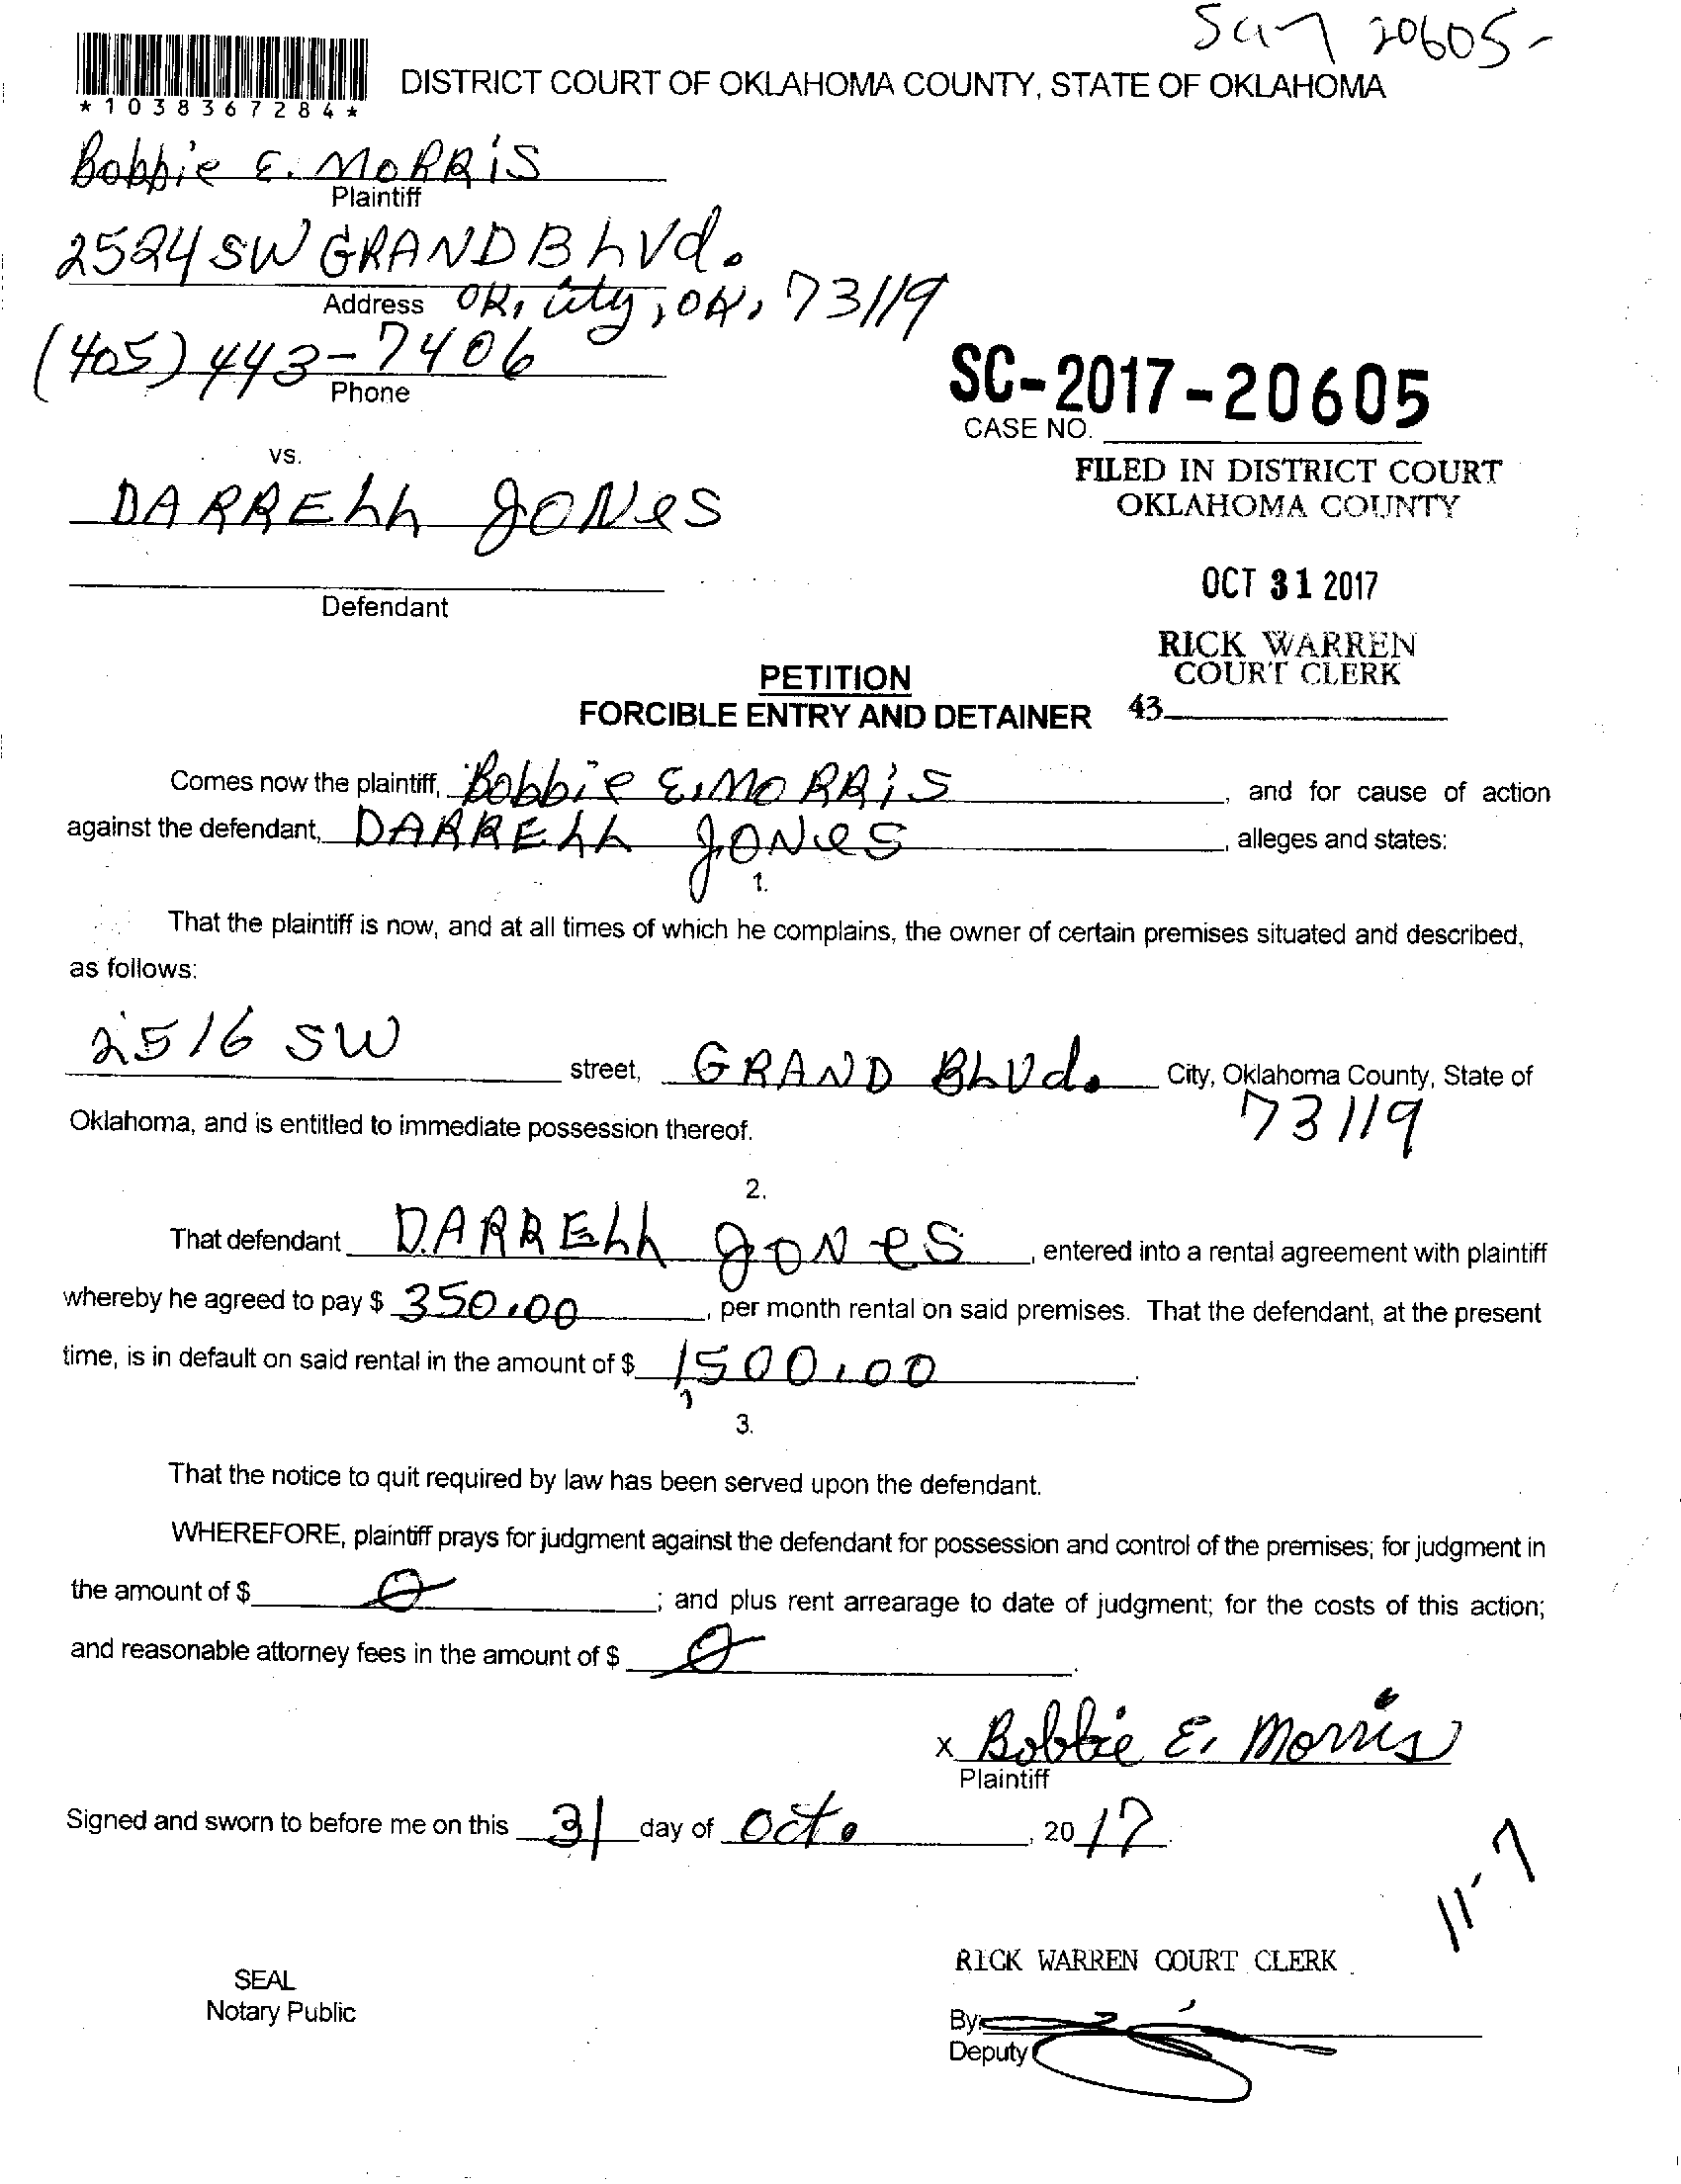 SC17 20605-
*1038367284*
DISTRICT COURT OF OKLAHOMA COUNTY, STATE OF OKLAHOMA
Bobbie E. MORRiS
Plaintiff
2524 SW GRAND BLVd.
Address OK, City, OK, 73119
(405) 443-7406
Phone
SC-2017-20605
CASE NO.
vs.
FILED IN DISTRICT COURT
OKLAHOMA COUNTY
DARRELL JONes
OCT 31 2017
Defendant
RICK WARREN
COURT CLERK
PETITION
FORCIBLE ENTRY AND DETAINER
43
Comes now the plaintiff, Bobbie E. MORRiS, and for cause of action
against the defendant, DARRELL JONes, alleges and states:
1.
That the plaintiff is now, and at all times of which he complains, the owner of certain premises situated and described,
as follows:
2516 SW street, GRAND BLVd. City, Oklahoma County, State of
Oklahoma, and is entitled to immediate possession thereof. 73119
2.
That defendant DARRELL JONes, entered into a rental agreement with plaintiff
whereby he agreed to pay $ 350.00, per month rental on said premises. That the defendant, at the present
time, is in default on said rental in the amount of $ 1,500.00.
3.
That the notice to quit required by law has been served upon the defendant.
WHEREFORE, plaintiff prays for judgment against the defendant for possession and control of the premises; for judgment in
the amount of $ 0; and plus rent arrearage to date of judgment; for the costs of this action;
and reasonable attorney fees in the amount of $ 0.
x Bobbie E. Morris
Plaintiff
Signed and sworn to before me on this 31 day of Oct., 2017.
11-7
RICK WARREN COURT CLERK
SEAL
Notary Public
By:
Deputy